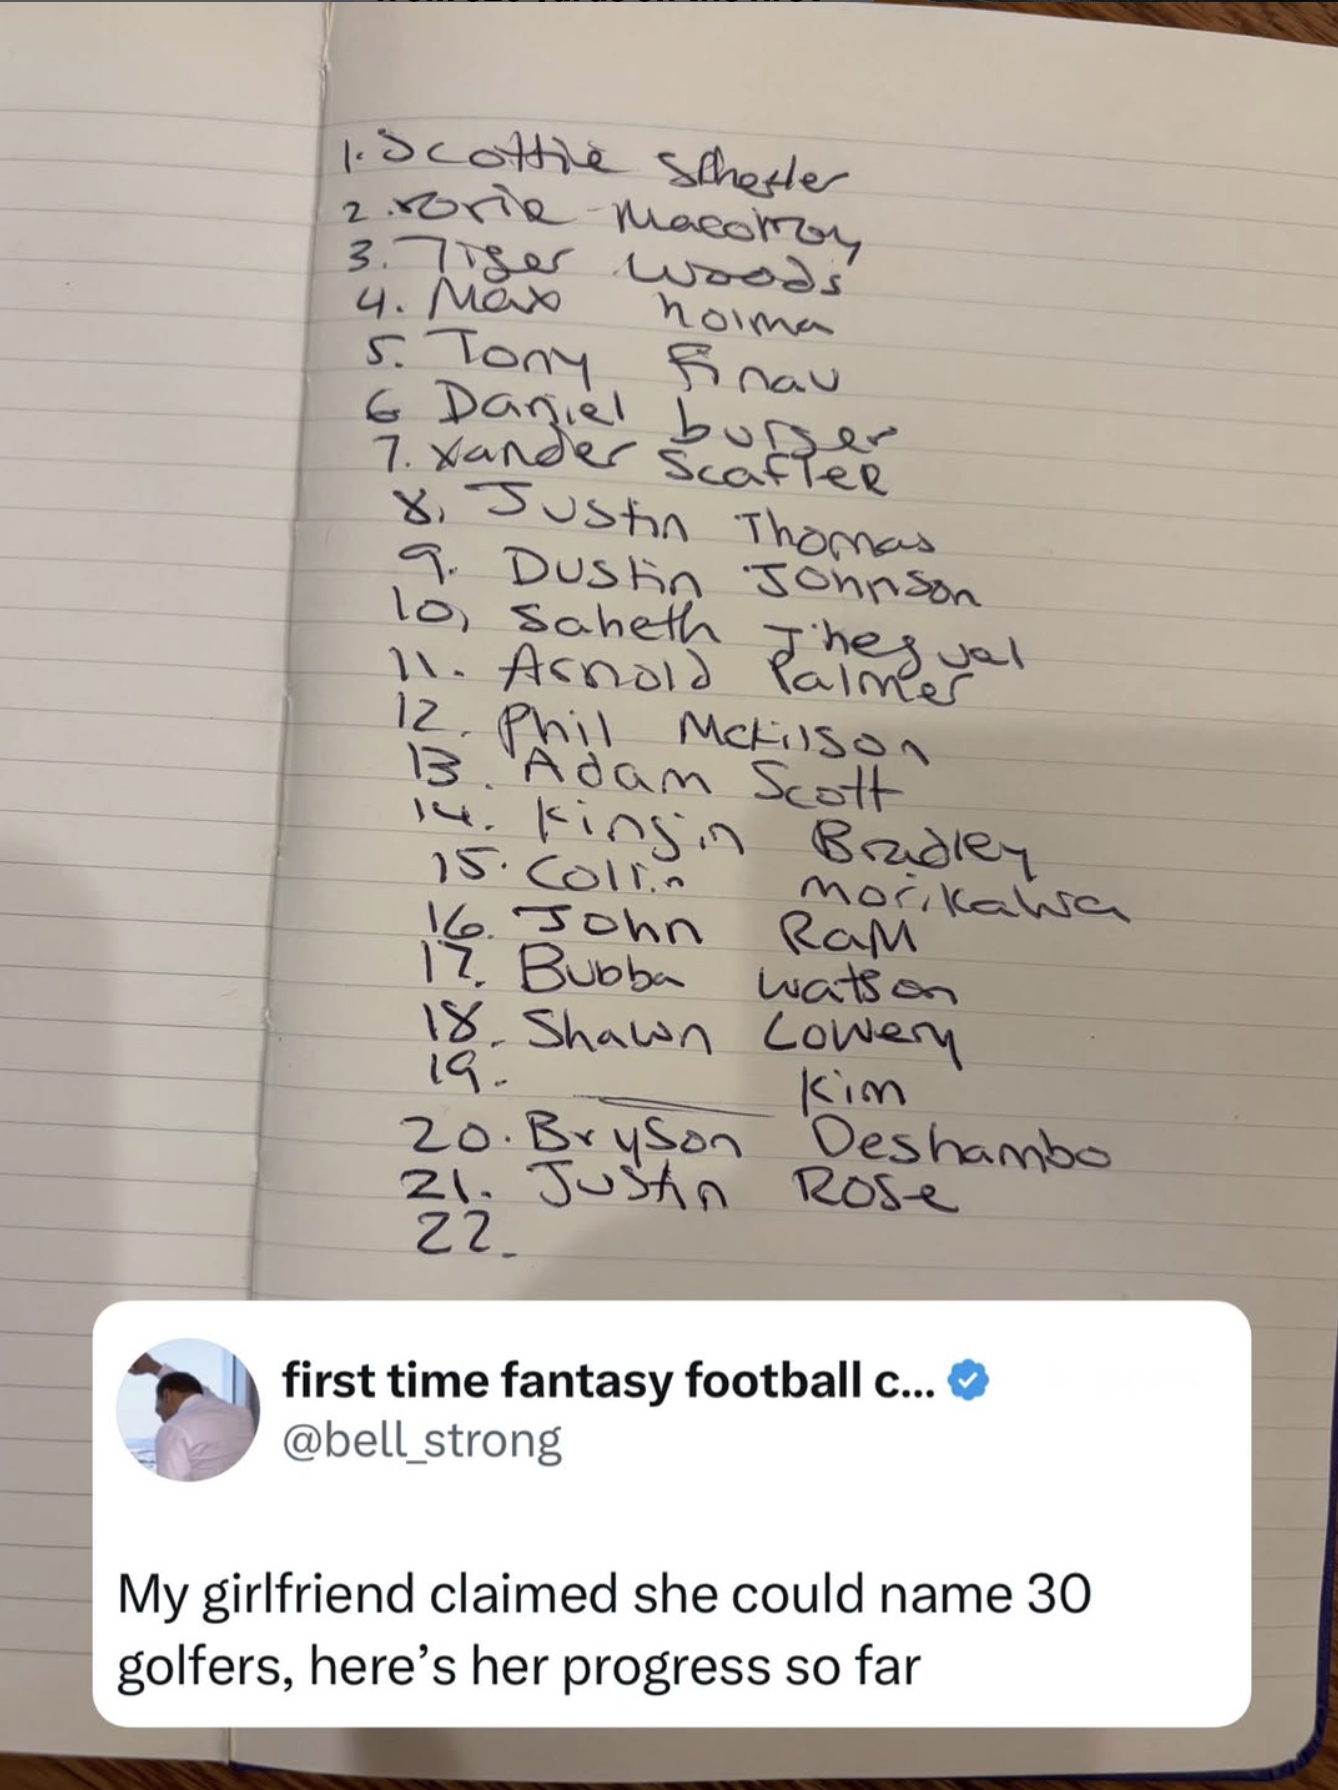 1. Scottie Sfhefler
2. rorie Macorroy
3. Tiger woods
4. Max homa
5. Tony finau
6 Daniel burger
7. Xander Scaflee
8. Justin Thomas
9. Dustin Johnson
10, Saheth Thegual
11. Arnold Palmer
12. Phil Mckilson
13. Adam Scott
14. Kingin Bradley
15. Collin morikawa
16. John RaM
17. Bubba watson
18. Shawn Lowery
19. Kim
20. Bryson Deshambo
21. Justin Rose
22.
first time fantasy football c...
@bell_strong
My girlfriend claimed she could name 30
golfers, here’s her progress so far